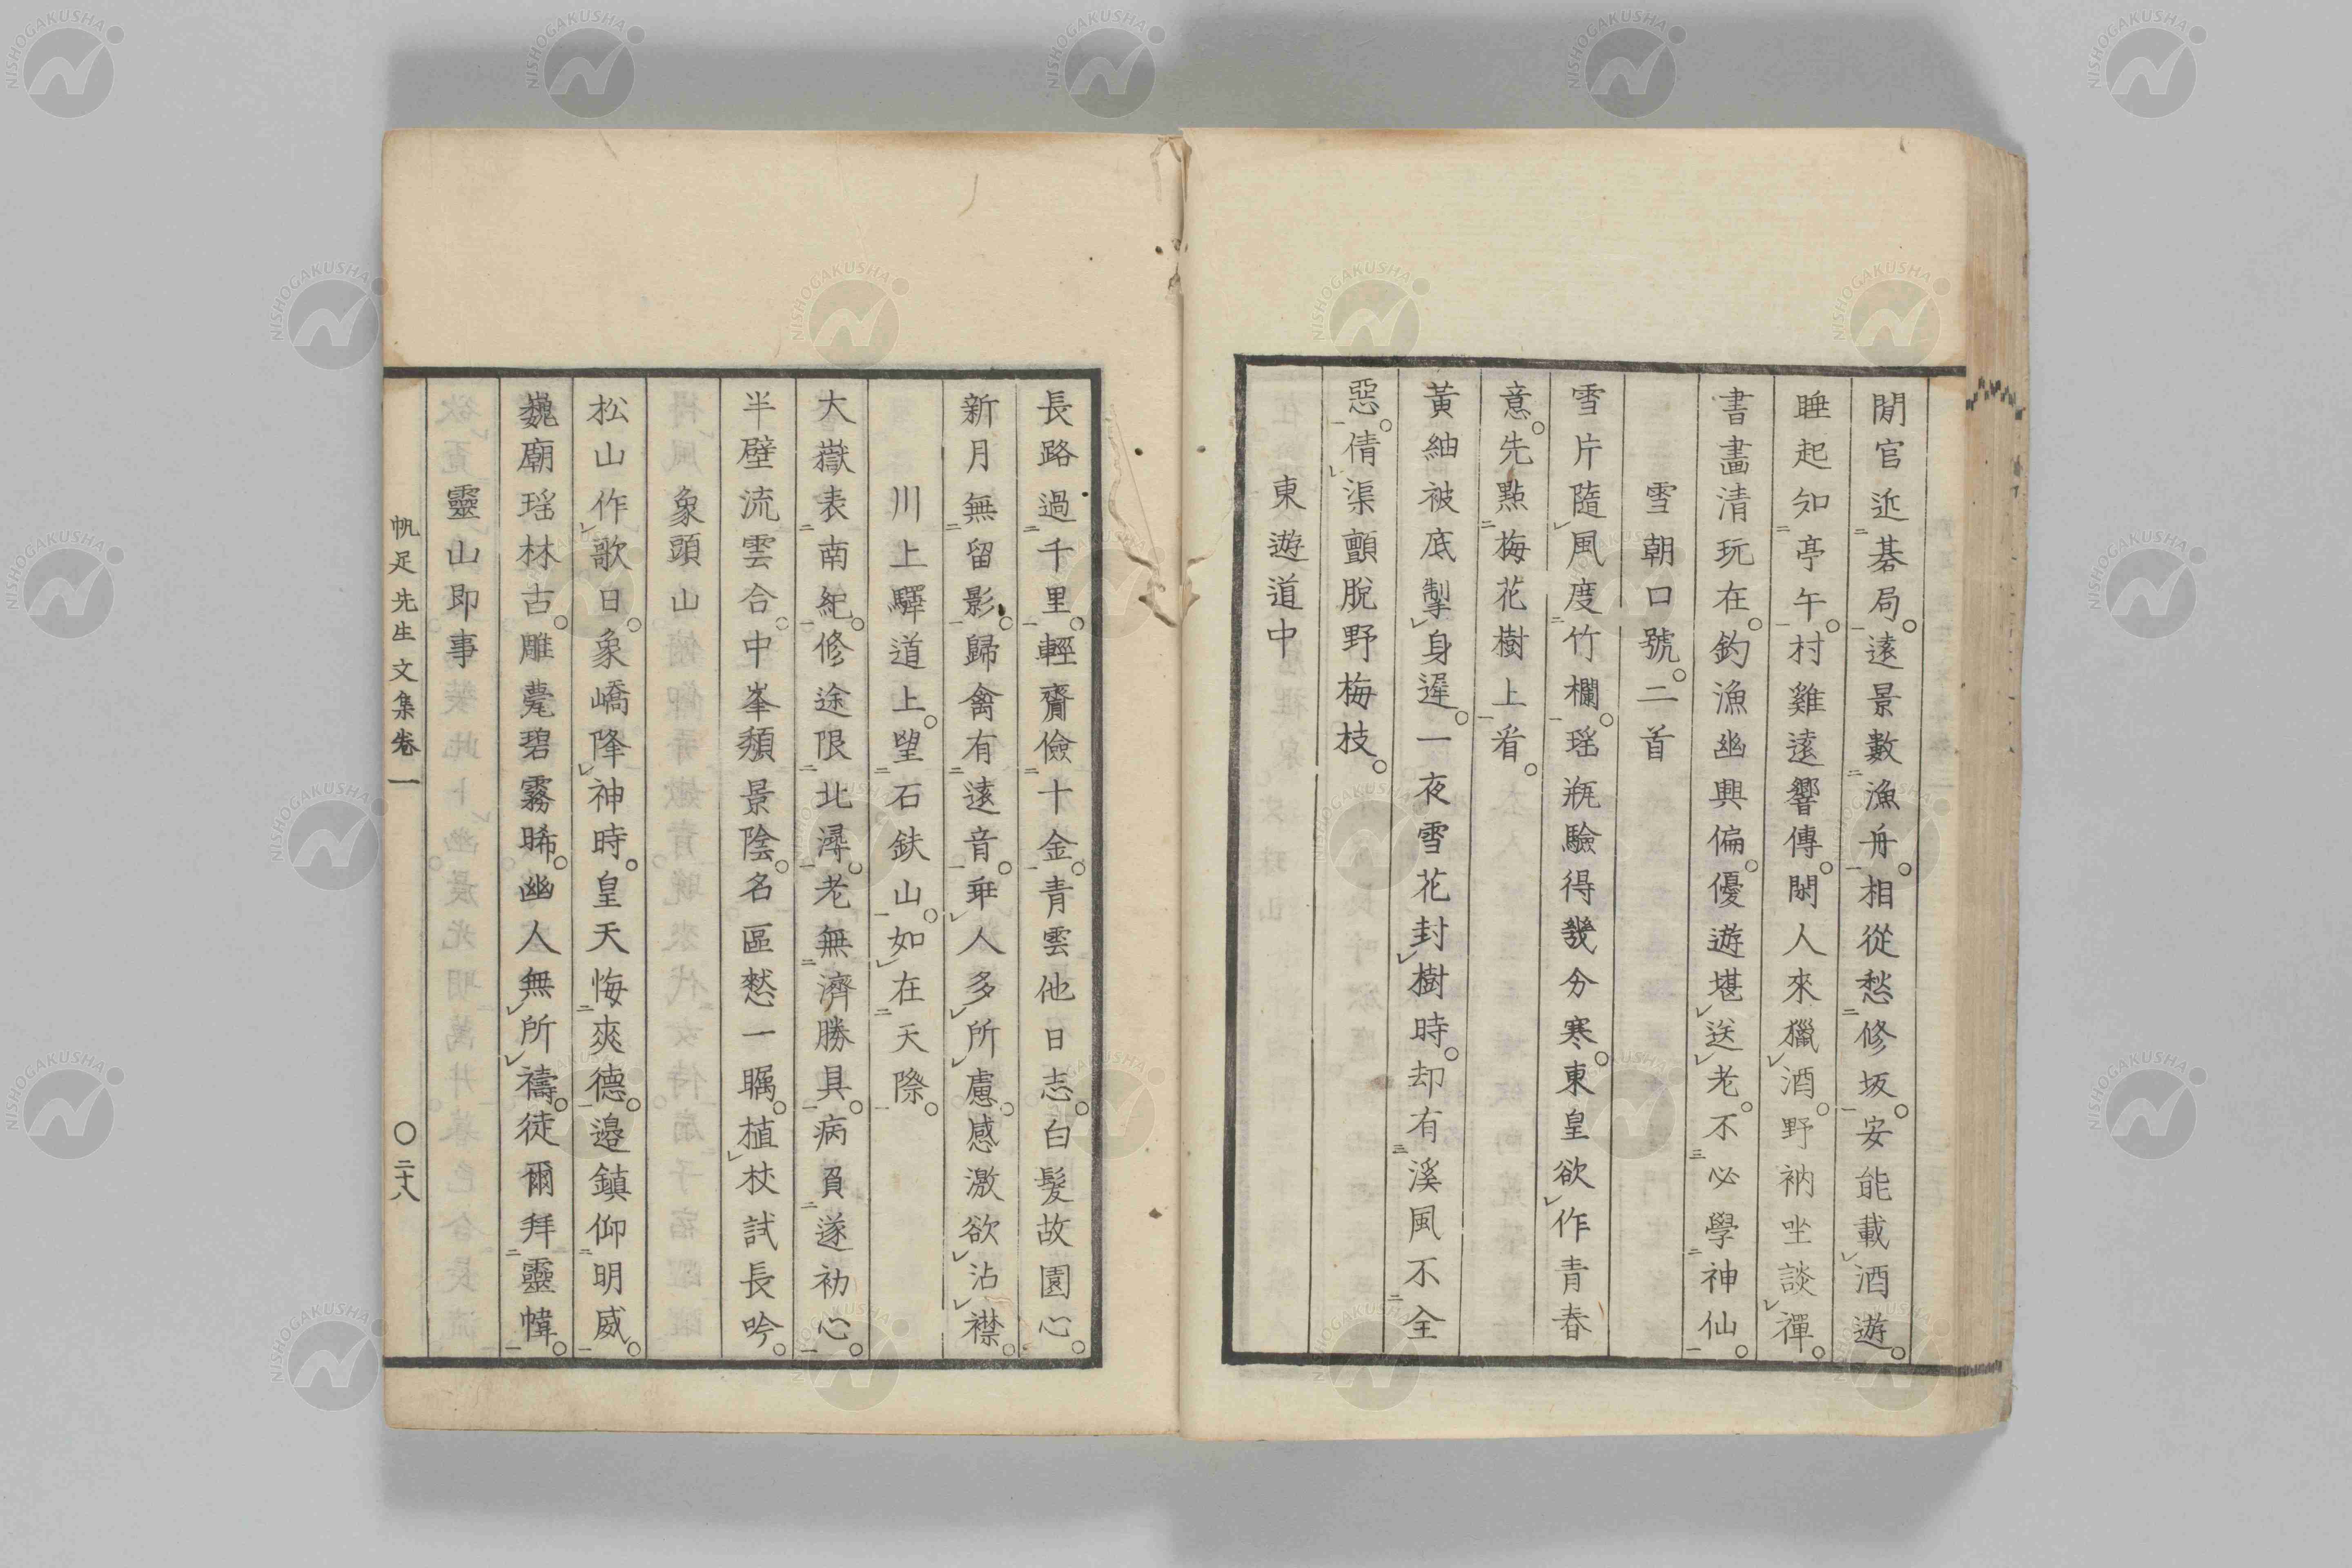 閒官近棊局。遠景數漁舟。相從愁修坂。安能載酒遊。
睡起知亭午。村雞遠響傳。閑人來獵酒。野衲坐談禪。
書畫清玩在。釣漁幽興偏。優遊堪送老。不必學神仙。
雪朝口號。二首
雪片隨風度竹欄。瑶瓶驗得幾分寒。東皇欲作青春
意。先點梅花樹上看。
黃紬被底掣身遲。一夜雪花封樹時。却有溪風不全
惡。倩渠顫脫野梅枝。
東遊道中
長路過千里。輕齎儉十金。青雲他日志。白髮故園心。
新月無留影。歸禽有遠音。乘人多所慮。感激欲沾襟。
川上驛道上。望石鈇山。如在天際。
大嶽表南紀。修途限北潯。老無濟勝具。病負遂初心。
半壁流雲合。中峯頹景陰。名區愁一矚。植杖試長吟。
象頭山
松山作歌日。象嶠降神時。皇天悔爽德。邊鎮仰明威。
巍廟瑶林古。雕甍碧霧晞。幽人無所禱。徒爾拜靈幃。
靈山即事
帆足先生文集卷一 〇二十八
NISHOGAKUSHA